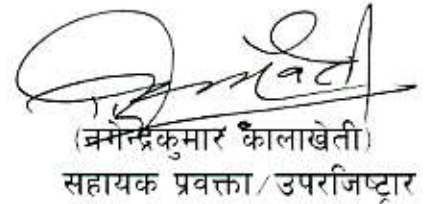 (नगेन्द्रकुमार कालाखेती)
सहायक प्रवक्ता/उपरजिष्ट्रार